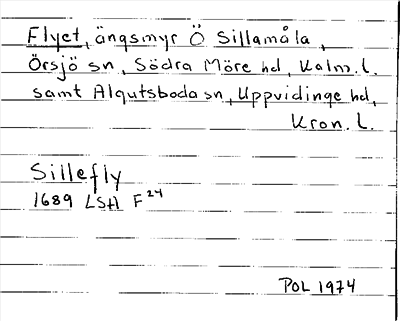 Flyet, ängsmyr Ö Sillamåla,
Örsjö sn, Södra Möre hd, Kalm. l.
samt Algutsboda sn, Uppvidinge hd,
Kron. l.
Sillefly
1689 LSA F24
POL 1974